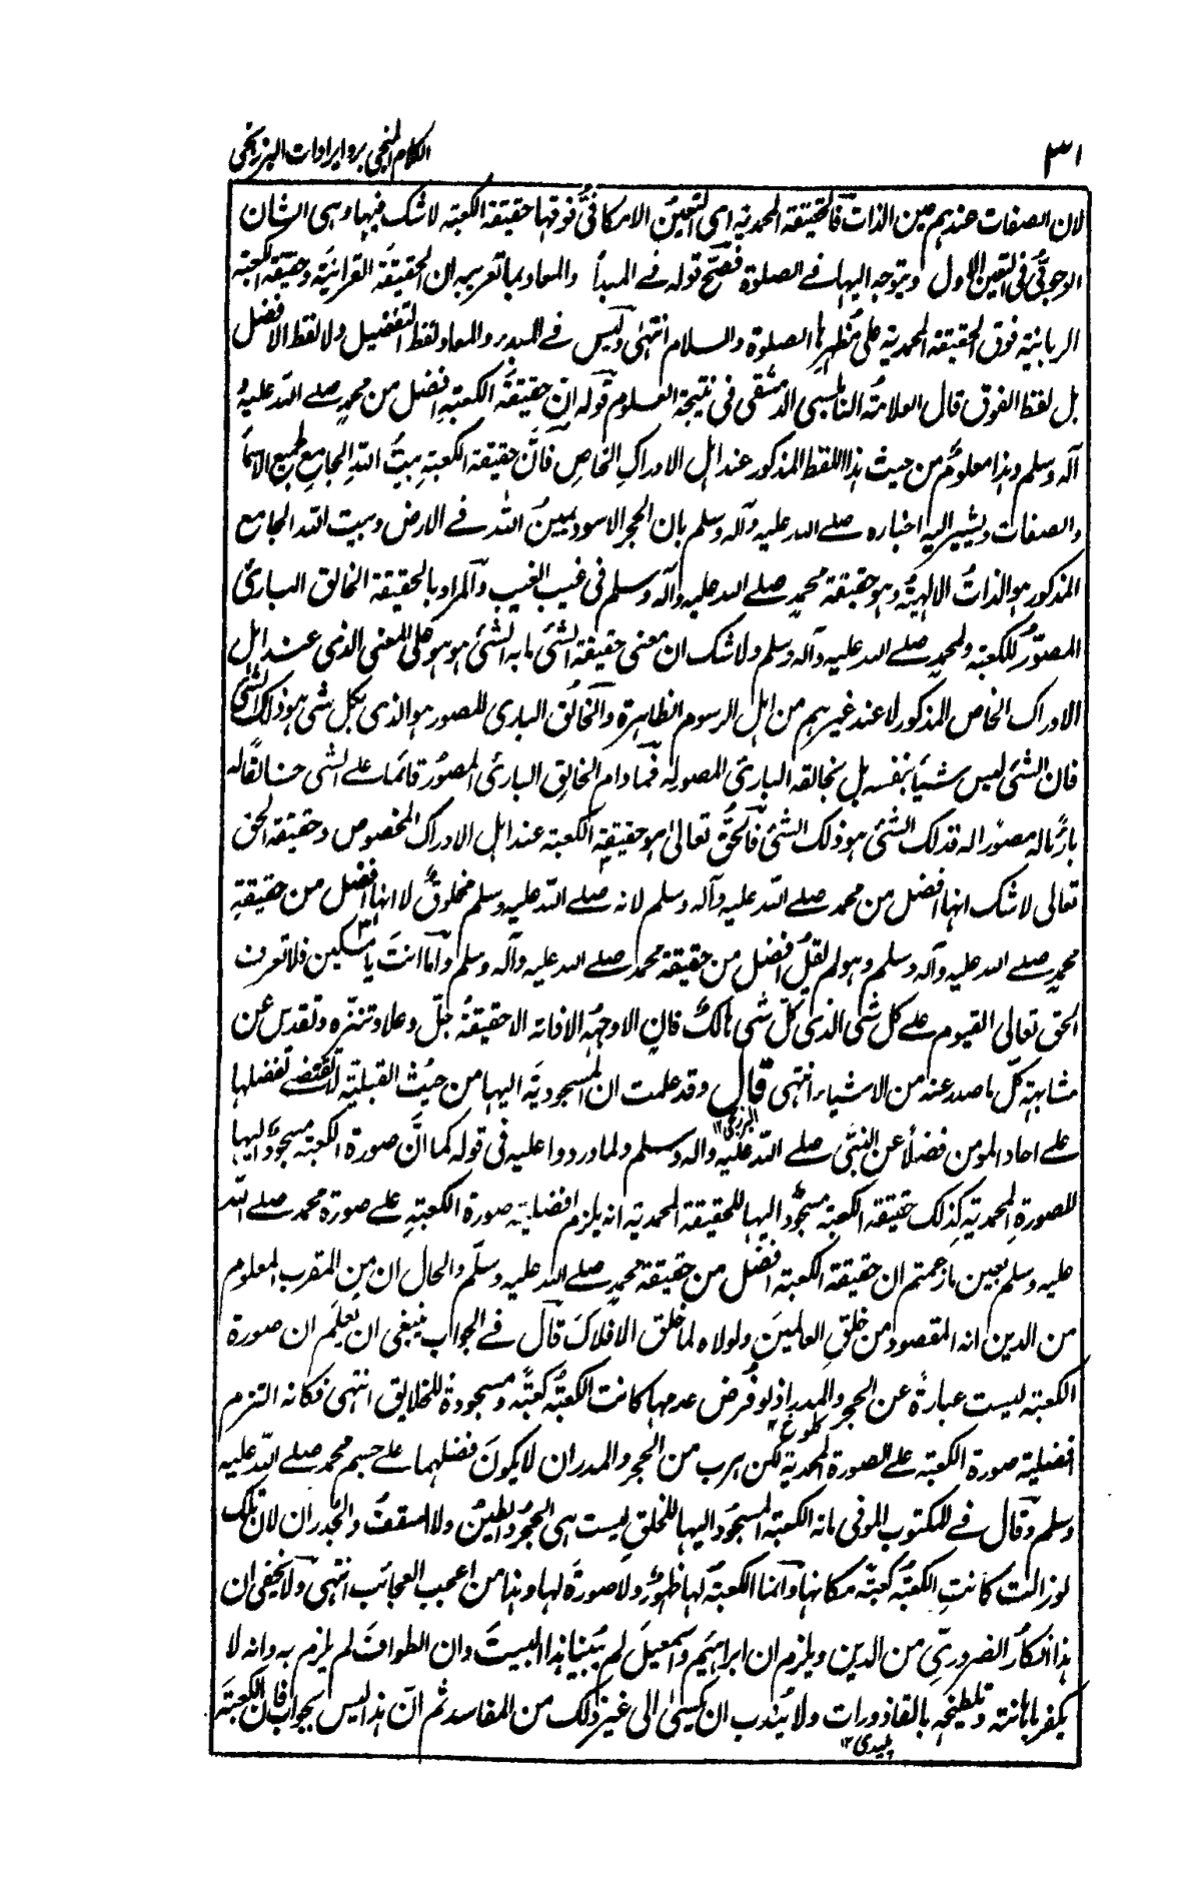 ٣١ الكلام المنجي برد ايرادات البرزنجي
لان الصفات عندهم عين الذات فالحقيقة المحمدية اى التعين الامكانى فوقها حقيقة الكعبة لاشك فيها وهى الشان
الوجوبى فى التعين الاول ويتوجه اليها فے الصلوة فصح قوله فے المبدأ والمعاد بما تعريبه ان الحقيقة القرانية وحقيقة الكعبة
الربانية فوق الحقيقة المحمدية على مظهرها الصلوة والسلام انتهى وليس فے المبدء والمعاد لفظ التفضيل ولا لفظ الافضل
بل لفظ الفوق قال العلامة النابلسى الدمشقى فى نتيجة العلوم قوله ان حقيقة الكعبة افضل من محمد صلے الله عليه و
آله وسلم وهذا معلوم من حيث هذا اللفظ المذكور عند اهل الادراك الخاص فان حقيقة الكعبة بيت الله الجامع لجميع الاسما
والصفات ويشير اليه اخباره صلے الله عليه وآله وسلم بان الحجر الاسود يمين الله فے الارض وبيت الله الجامع
المذكور هو الذات الالهية وهو حقيقة محمد صلے الله عليه وآله وسلم فى غيب الغيب والمراد بالحقيقة الخالق البارئ
المصور للكعبة ولمحمد صلے الله عليه وآله وسلم ولاشك ان معنى حقيقة الشئ ما به الشئ هو هو على المعنى الذى عند اهل
الادراك الخاص المذكور لا عند غيرهم من اهل الرسوم الظاهرة والخالق البارى المصور هو الذى بكل شى هو ذلك الشى
فان الشئ ليس شيأ بنفسه بل بخالقه البارئ المصور له فما دام الخالق البارئ المصور قائما علے الشى خالقا له
بارئا له مصورا له فذلك الشئ هو ذلك الشئ فالحق تعالى هو حقيقة الكعبة عند اهل الادراك المخصوص وحقيقة الحق
تعالى لاشك انها افضل من محمد صلے الله عليه وآله وسلم لانه صلے الله عليه وسلم مخلوق لا انها افضل من حقيقة
محمد صلے الله عليه وآله وسلم وهو لم يقل افضل من حقيقة محمد صلے الله عليه وآله وسلم واما انت يا مسكين فلا تعرف
الحق تعالى القيوم علے كل شى الذى كل شى هالك فان الا وجهه الا فانه الا حقيقة جل وعلا وتنزه وتقدس عن
مشابهة كل ما صدر عنه من الاشياء انتهى قال وقد علمت ان المسجودية اليها من حيث القبلية لا تقتضے تفضلها
البرزنجى ١٢
علے احاد المومن فضلا عن النبى صلے الله عليه واله وسلم ولما وردوا عليه فى قوله كما ان صورة الكعبة مسجود اليها
للصورة المحمدية كذلك حقيقة الكعبة مسجود اليها للحقيقة المحمدية انه يلزم افضلية صورة الكعبة علے صورة محمد صلے الله
عليه وسلم بعين ما زعمتم ان حقيقة الكعبة افضل من حقيقة محمد صلے الله عليه وسلم والحال ان من المقرب المعلوم
من الدين انه المقصود من خلق العالمين ولولاه لما خلق الافلاك قال فے الجواب ينبغى ان يعلم ان صورة
الكعبة ليست عبارة عن الحجر والمدر اذ لو فرض عدمها كانت الكعبة كعبة ومسجودة للخلايق انتهى فكانه التزم
كلوخ ١٢
افضلية صورة الكعبة علے الصورة المحمدية لكن هرب من الحجر والمدر ان لا يكون فضلهما علے جسم محمد صلے الله عليه
وسلم وقال فے المكتوب الموفى مائة الكعبة المسجود اليها للخلق ليست هى الحجر والطين ولا السقف والجدران لان تلك
لو زالت كانت الكعبة كعبة مكانها وانما الكعبة لها ظهور ولا صورة لها وهذا من اعجب العجائب انتهى ولا يخفى ان
هذا انكار الضرورى من الدين ويلزم ان ابراهيم واسمعيل لم يبنيا هذا البيت وان الطواف لم يلزم به وانه لا
يكفر باهانته وتلطيخه بالقاذورات ولا يندب ان يكسى الى غير ذلك من المفاسد ثم ان هذا ليس بجواب فان الكعبة
پليدى ١٢